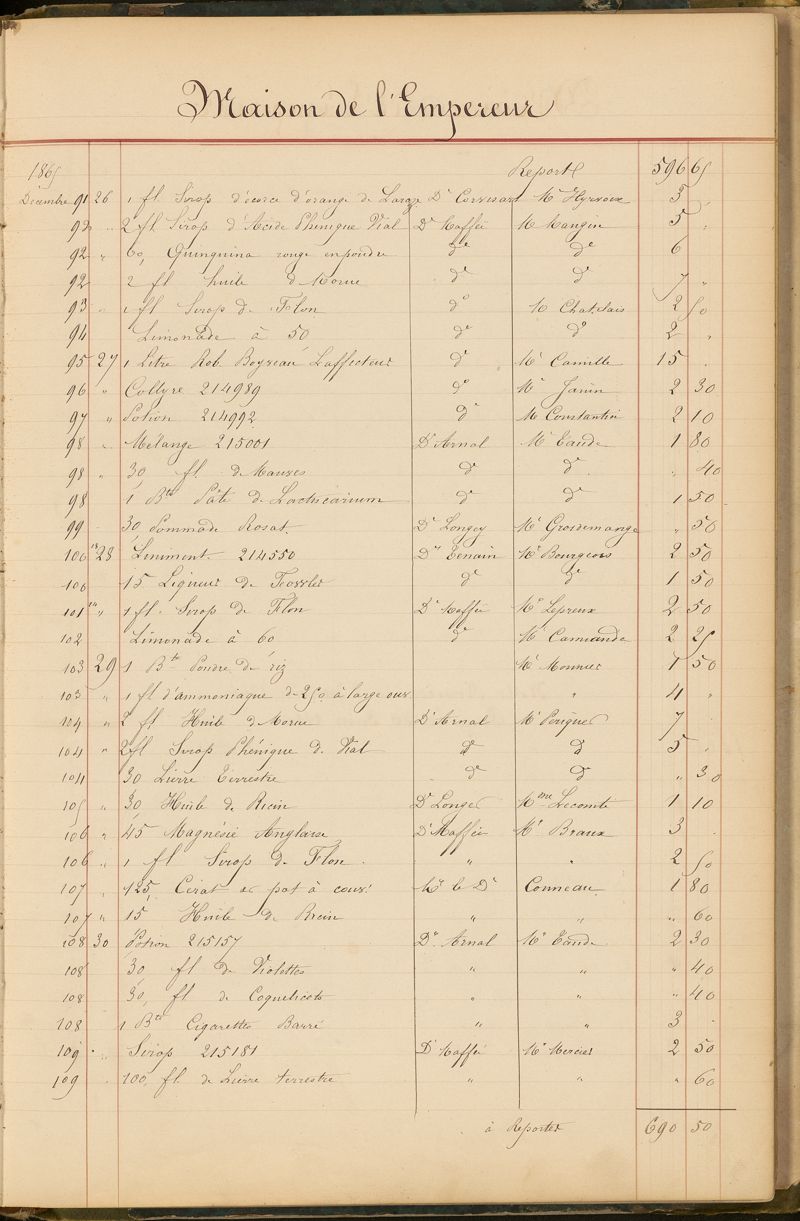 Maison de l'Empereur
1865 Report 596 65
Décembre 91 26 1 fl Sirop d'écorce d'orange de Laroze Dr Corvisart Mr Hyrvoix 3 "
92 " 2 fl Sirop d'Acide Phénique Vial Dr Maffei Mr Mangin 5 "
92 " 60, Quinquina rouge en poudre do do 6
92 2 fl huile d Morue do do 7 "
93 " 1 fl Sirop de Flon do Mr Chatelais 2 50
94 Limonade à 50 do do 2 "
95 27 1 Litre Rob Boyveau Laffecteur do Mr Camille 15 .
96 " Collyre 214989 do Mr Janin 2 30
97 " Potion 214992 do Mr Constantin 2 10
98 " Mélange 215001 Dr Arnal Mr Eaude 1 80
98 " 30, fl de Mauves do do " 40
98 1 Bte Pâte de Lactucarium do do 1 50
99 30, Pommade Rosat Dr Longey Mr Grosdemange " 50
100 28 Liniment 214550 Dr Tenain Mr Bourgeois 2 50
100 15 Liqueur de do do 1 50
101 " 1 fl. Sirop de Flon Dr Maffei Mr Lepreux 2 50
102 Limonade à 60 do Mr 2 25
103 29 1 Bte Poudre de riz Mr Monnier 1 50
103 " 1 fl d'ammoniaque de 250 à large ouv. " 4 "
104 " 2 fl Huile d Morue Dr Arnal Mr 7 .
104 " 2 fl Sirop Phénique d. Vial do do 5 "
104 30 Lierre Terrestre do do " 30
105 " 30, Huile de Ricin Dr Longet Mme Lecomte 1 10
106 " 45 Magnésie Anglaise Dr Maffei Mr Braux 3 .
106 " 1 fl Sirop de Flon . " " 2 50
107 " 125, Cérat & pot à couv. Mr le Dr Conneau 1 80
107 " 15 Huile de Ricin " " " 60
108 30 Potion 215157 Dr Arnal Mr Eaude 2 30
108 30, fl de Violettes " " " 40
108 30, fl de Coquelicots " " " 40
108 1 Bte Cigarettes Barré " " 3 .
109 " Sirop 215181 Dr Maffei Mr Mercier 2 50
109 100, fl. de Lierre terrestre " " " 60
à Reporter 690 50